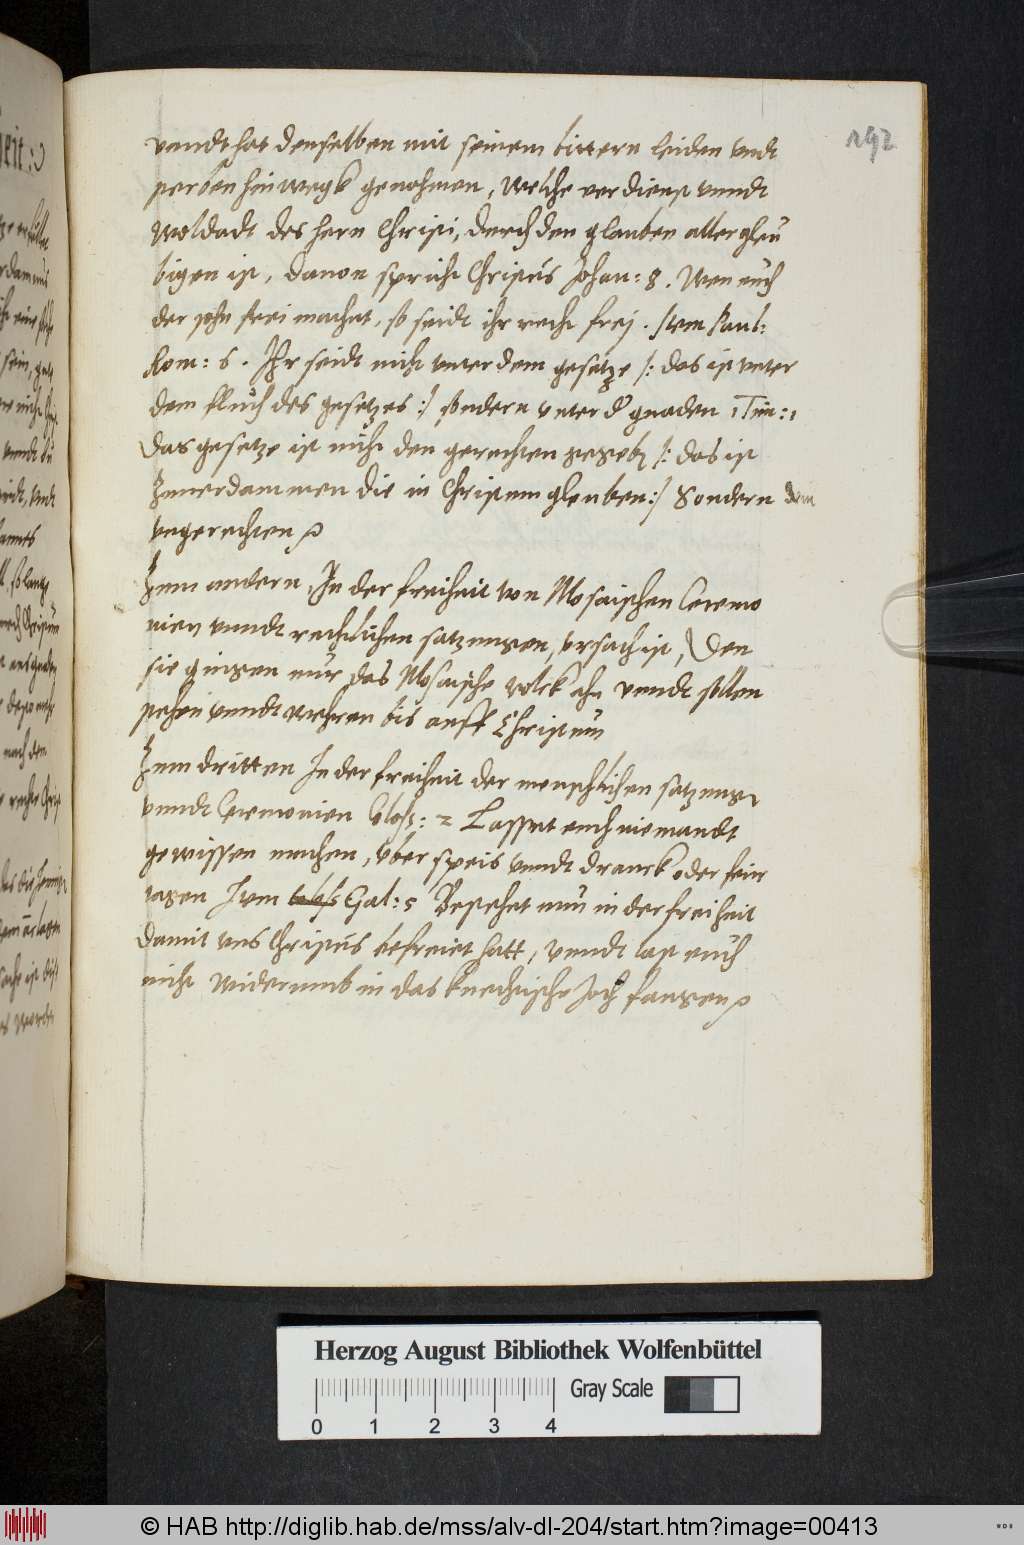 192
vnndt hat denselben mit seinem bittern leiden vndt
sterben hinwegk genohmen, welche verdienst vnndt
woldadt des hern Christi, durch den glauben aller gleu
bigen ist, dauon spricht Christus Johan: 8. Wen euch
der sohn frei machet, so seidt ihr recht frej. Item Paul:
Rom: 6. Ihr seidt nicht vnter dem gesetze /: das ist vnter
dem fluch des gesetzes :/ sondern vnter d' gnaden 1 Tim: 1
Das gesetze ist nicht den gerechten gegeb /: das ist
Immerdammen die in Christum gleuben :/ Sondern dem
vngerechten
Zum andern, In der freiheit von Mosaischen Ceremo
nien vnndt rechtlichen satzungen, vrsach ist, Den
sie gingen nur das Mosaische volck ahn vnndt sollen
stehen vnndt wehren bis auff Christum
Zum dritten In der freiheit der menschlichen satzung
vnndt Ceremonien Coloss: 2 Lasset euch niemandt
gewissen machen, vber speis vnndt dranck oder feir
tagen Item Gal: 5 Bestehet nun in der freiheit
damit vns Christus befreiet hatt, vnndt last euch
nicht widerumb in das knechtische Joch fangen
Herzog August Bibliothek Wolfenbüttel
Gray Scale
0 1 2 3 4
© HAB http://diglib.hab.de/mss/alv-dl-204/start.htm?image=00413